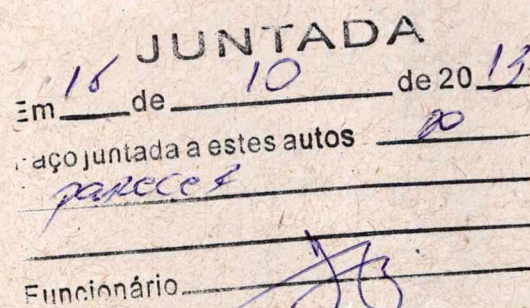 JUNTADA
Em 16 de 10 de 2013
aço juntada a estes autos do
parecer
Funcionário